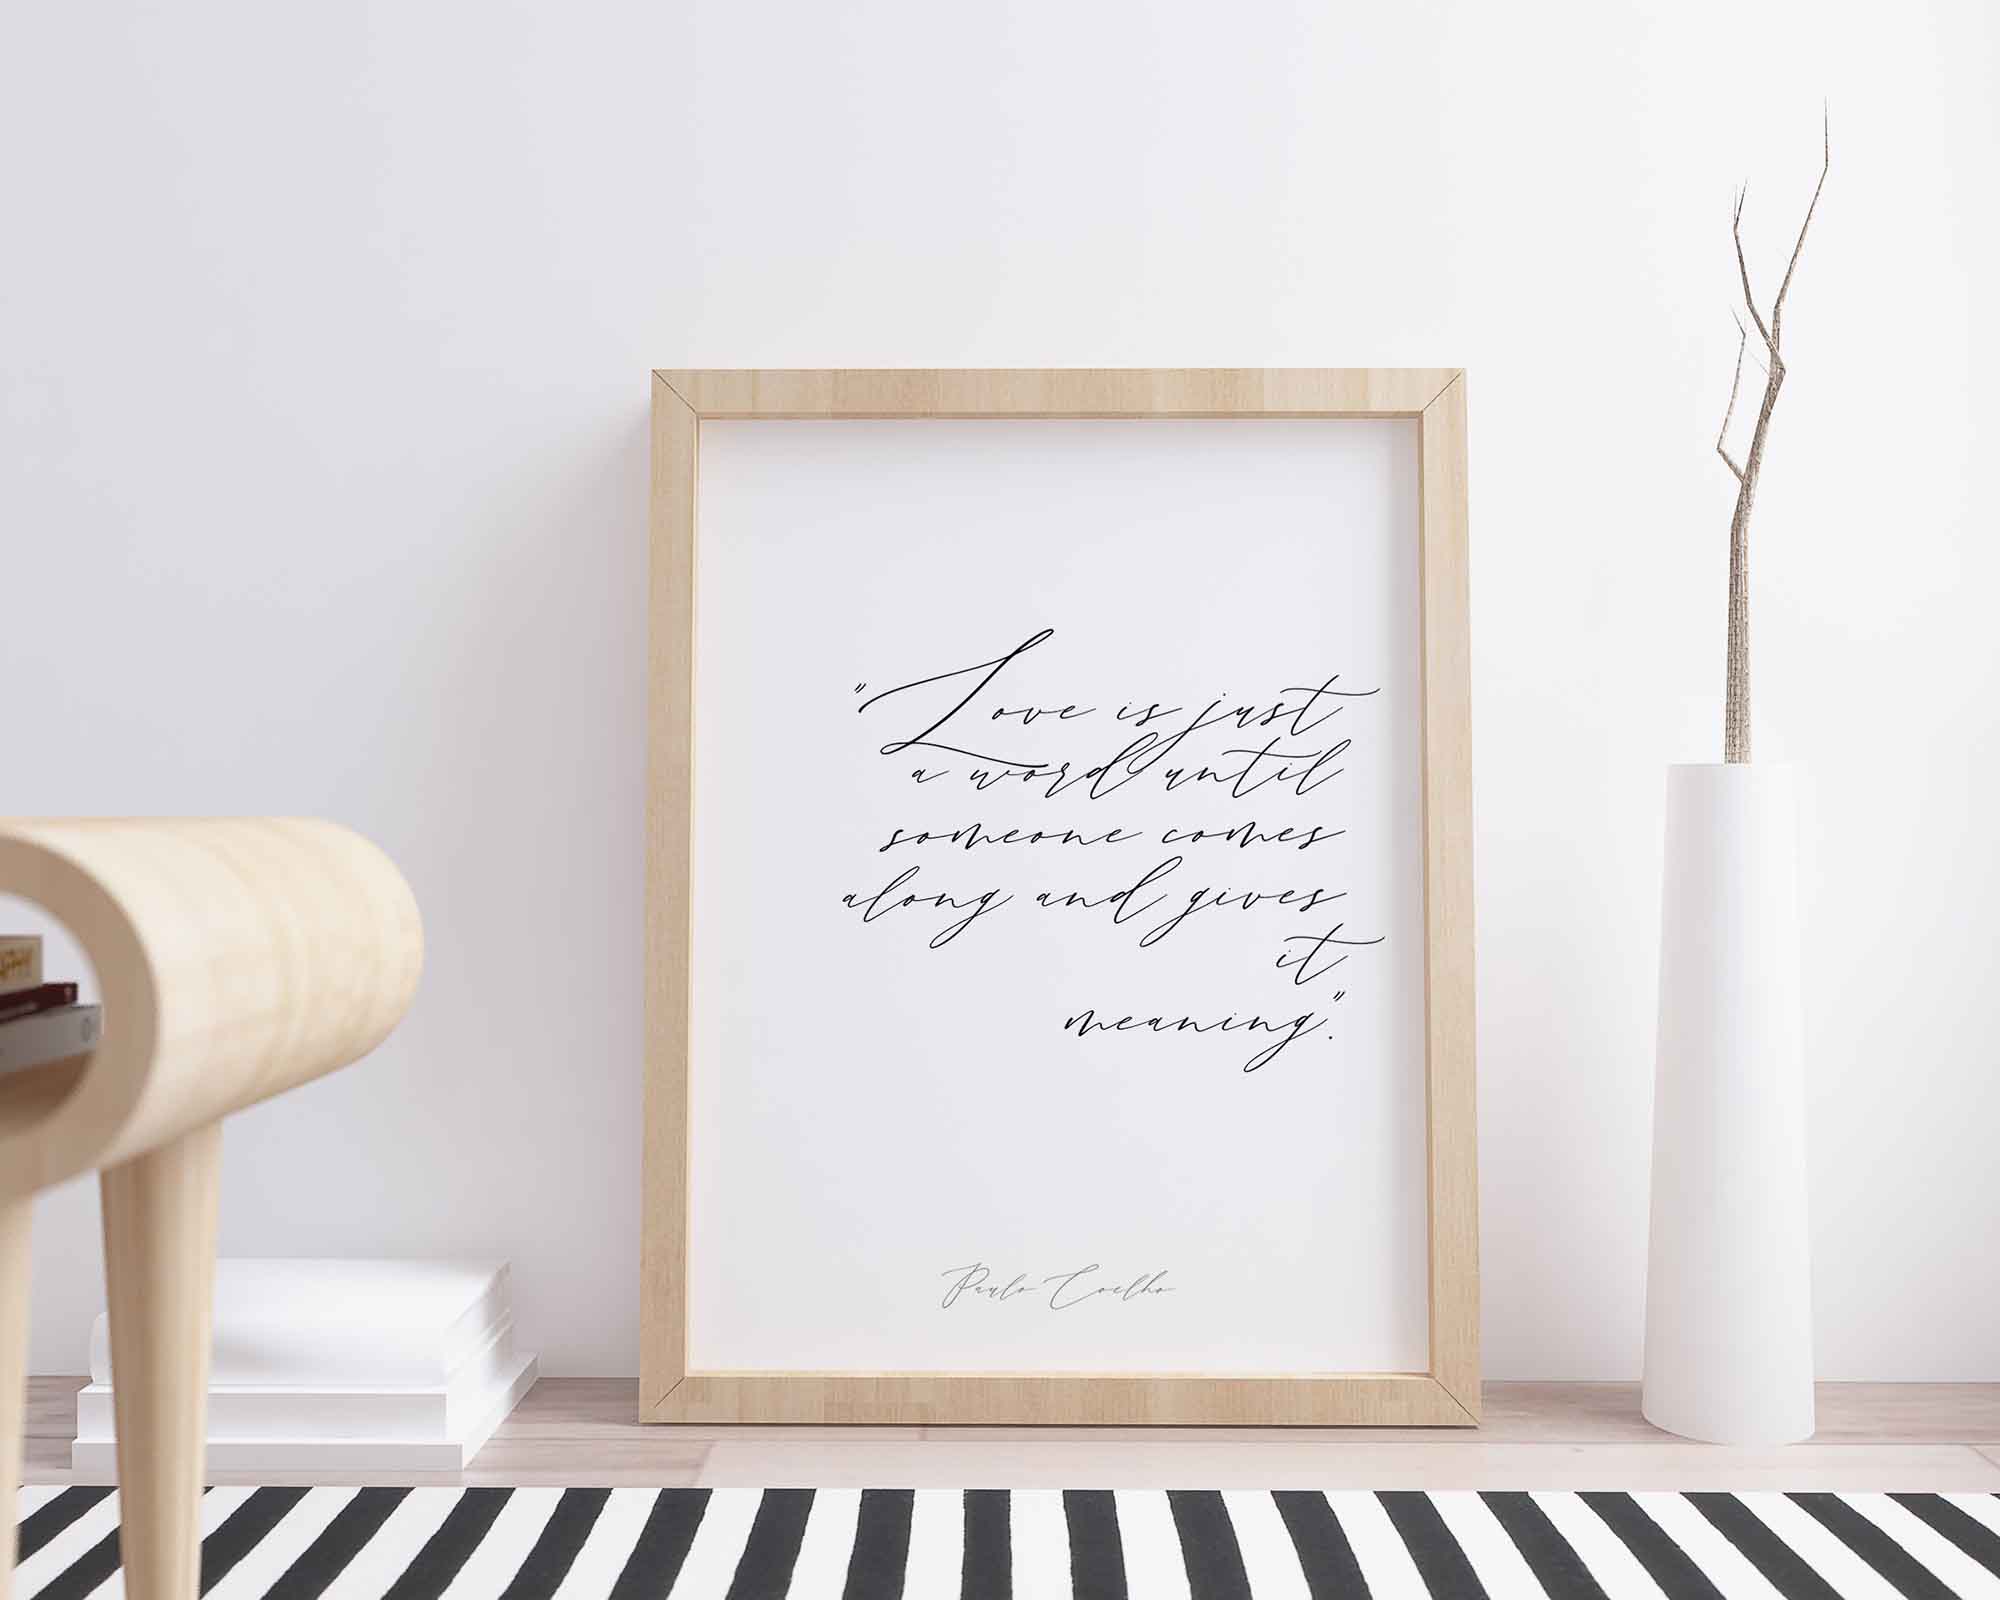 "Love is just
a word until
someone comes
along and gives
it
meaning".
Paulo Coelho